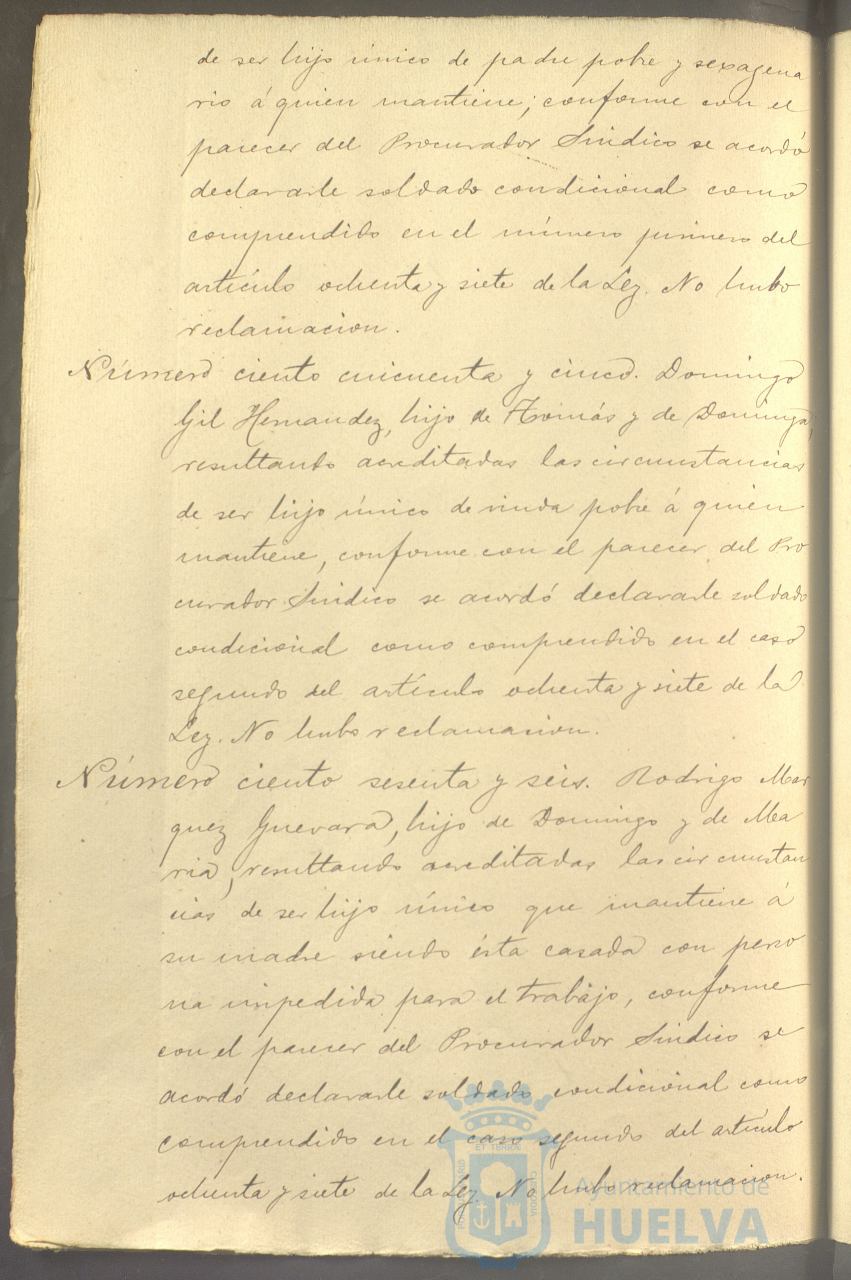 de ser hijo único de padre pobre y sexagena
rio á quien mantiene; conforme con el
parecer del Procurador Sindico se acordó
declararle soldado condicional como
comprendido en el número primero del
artículo ochenta y siete de la Ley. No hubo
reclamacion.
Número ciento cincuenta y cinco. Domingo
Gil Hernandez, hijo de Tomás y de Dominga,
resultando acreditadas las circunstancias
de ser hijo único de viuda pobre á quien
mantiene, conforme con el parecer del Pro
curador Sindico se acordó declararle soldado
condicional como comprendido en el caso
segundo del artículo ochenta y siete de la
Ley. No hubo reclamacion.
Número ciento sesenta y seis. Rodrigo Mar
quez Guevara, hijo de Domingo y de Ma
ria, resultando acreditadas las circunstan
cias de ser hijo único que mantiene á
su madre siendo ésta casada con perso
na impedida para el trabajo, conforme
con el parecer del Procurador Sindico se
acordó declararle soldado condicional como
comprendido en el caso segundo del artículo
ochenta y siete de la Ley. No hubo reclamacion.
Ayuntamiento de
HUELVA